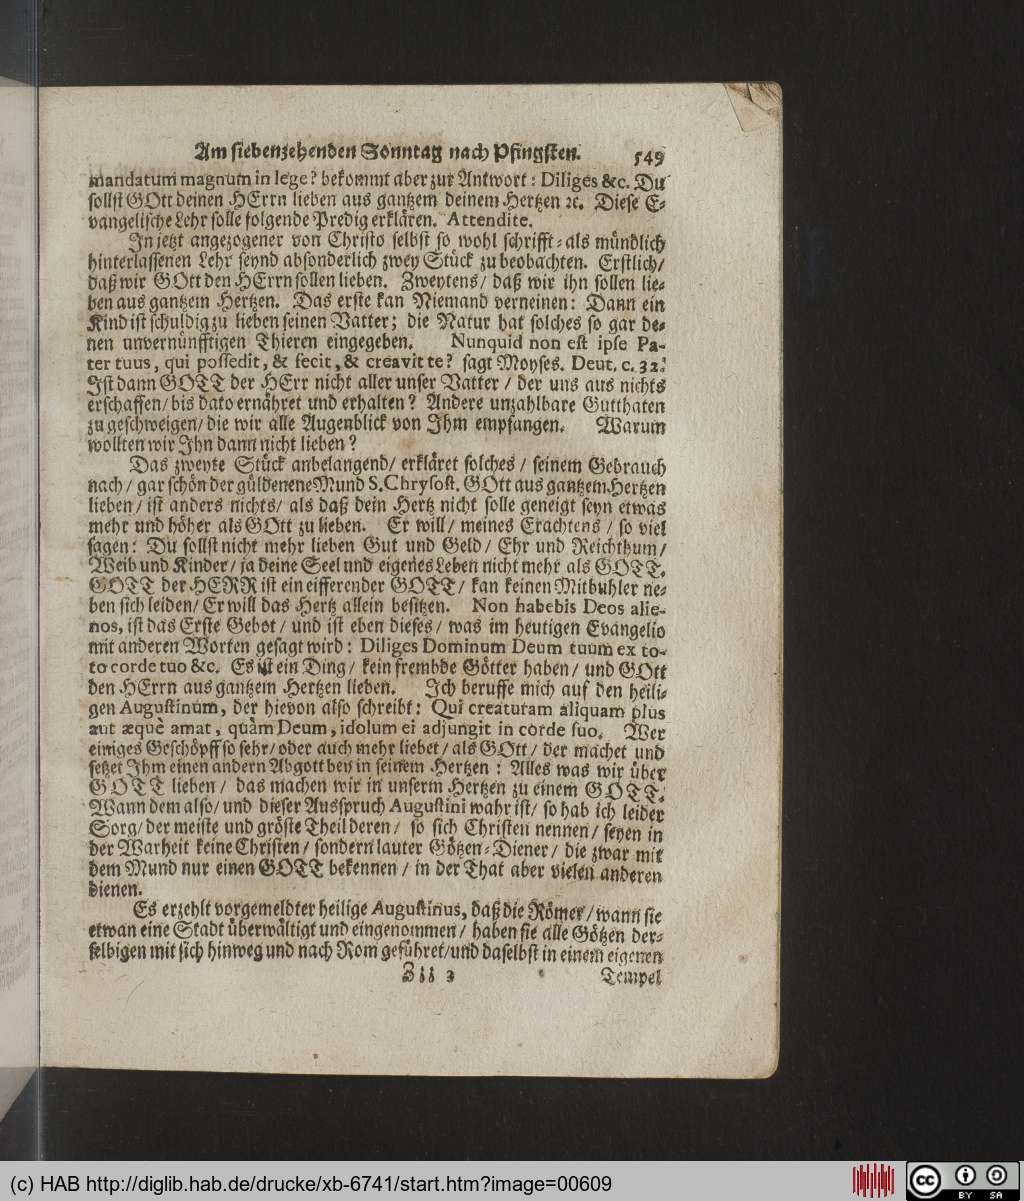 Am siebenzehenden Sonntag nach Pfingsten. 549
mandatum magnum in lege? bekommt aber zur Antwort: Diliges &c. Du
sollst GOtt deinen HErrn lieben aus gantzem deinem Hertzen ꝛc. Diese E-
vangelische Lehr solle folgende Predig erklären. Attendite.
In jetzt angezogener von Christo selbst so wohl schrifft- als mündlich
hinterlassenen Lehr seynd absonderlich zwey Stück zu beobachten. Erstlich/
daß wir GOtt den HErrn sollen lieben. Zweytens/ daß wir ihn sollen lie-
ben aus gantzem Hertzen. Das erste kan Niemand verneinen: Dann ein
Kind ist schuldig zu lieben seinen Vatter; die Natur hat solches so gar de-
nen unvernünfftigen Thieren eingegeben. Nunquid non est ipse Pa-
ter tuus, qui possedit, & fecit, & creavit te? sagt Moyses. Deut. c. 32.
Ist dann GOTT der HErr nicht aller unser Vatter / der uns aus nichts
erschaffen/ bis dato ernähret und erhalten? Andere unzahlbare Gutthaten
zu geschweigen/ die wir alle Augenblick von Ihm empfangen. Warum
wollten wir Ihn dann nicht lieben?
Das zweyte Stück anbelangend/ erkläret solches / seinem Gebrauch
nach/ gar schön der güldenene Mund S. Chrysost. GOtt aus gantzem Hertzen
lieben/ ist anders nichts/ als daß dein Hertz nicht solle geneigt seyn etwas
mehr und höher als GOtt zu lieben. Er will/ meines Erachtens / so viel
sagen: Du sollst nicht mehr lieben Gut und Geld/ Ehr und Reichthum/
Weib und Kinder/ ja deine Seel und eigenes Leben nicht mehr als GOTT.
GOTT der HERR ist ein eifferender GOTT/ kan keinen Mitbuhler ne-
ben sich leiden/ Er will das Hertz allein besitzen. Non habebis Deos alie-
nos, ist das Erste Gebot/ und ist eben dieses/ was im heutigen Evangelio
mit anderen Worten gesagt wird: Diliges Dominum Deum tuum ex to-
to corde tuo &c. Es ist ein Ding/ kein frembde Götter haben/ und GOtt
den HErrn aus gantzem Hertzen lieben. Ich beruffe mich auf den heili-
gen Augustinum, der hievon also schreibt: Qui creaturam aliquam plus
aut æquè amat, quàm Deum, idolum ei adjungit in corde suo. Wer
einiges Geschöpff so sehr/ oder auch mehr liebet/ als GOtt/ der machet und
setzet Ihm einen andern Abgott bey in seinem Hertzen: Alles was wir über
GOTT lieben/ das machen wir in unserm Hertzen zu einem GOTT.
Wann dem also/ und dieser Ausspruch Augustini wahr ist/ so hab ich leider
Sorg/ der meiste und gröste Theil deren/ so sich Christen nennen/ seyen in
der Warheit keine Christen/ sondern lauter Götzen-Diener/ die zwar mit
dem Mund nur einen GOTT bekennen/ in der That aber vielen anderen
dienen.
Es erzehlt vorgemeldter heilige Augustinus, daß die Römer/ wann sie
etwan eine Stadt überwältigt und eingenommen/ haben sie alle Götzen der-
selbigen mit sich hinweg und nach Rom geführet/ und daselbst in einem eigenen
Zzz 3 Tempel
(c) HAB http://diglib.hab.de/drucke/xb-6741/start.htm?image=00609
cc BY SA